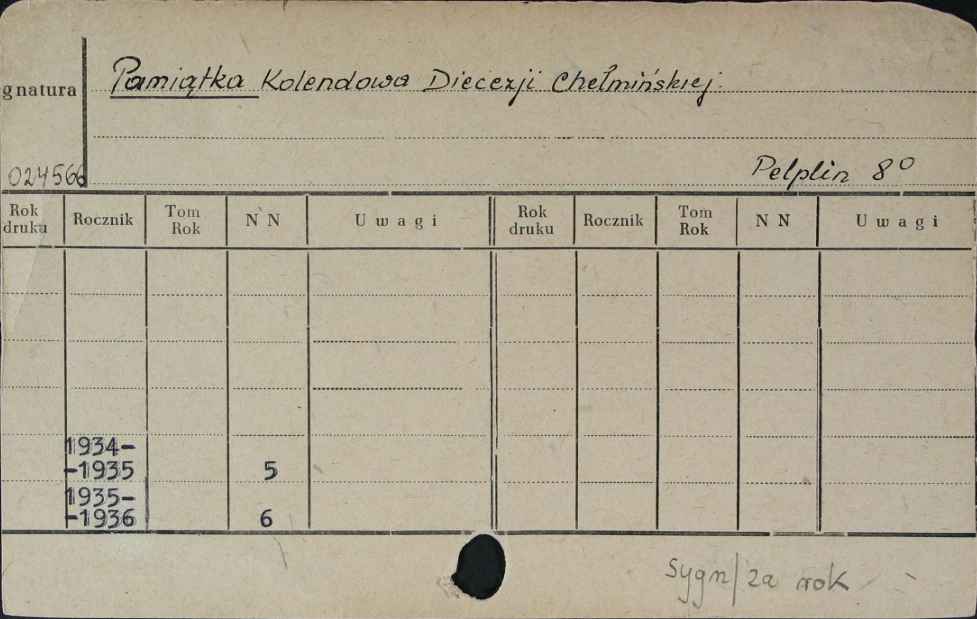 Pamiątka Kolendowa Diecezji Chełmińskiej.
gnatura
024566
Pelplin 8°
Rok druku Rocznik Tom Rok N N Uwagi Rok druku Rocznik Tom Rok N N Uwagi
1934-
-1935 5
1935-
-1936 6
Sygn/za rok